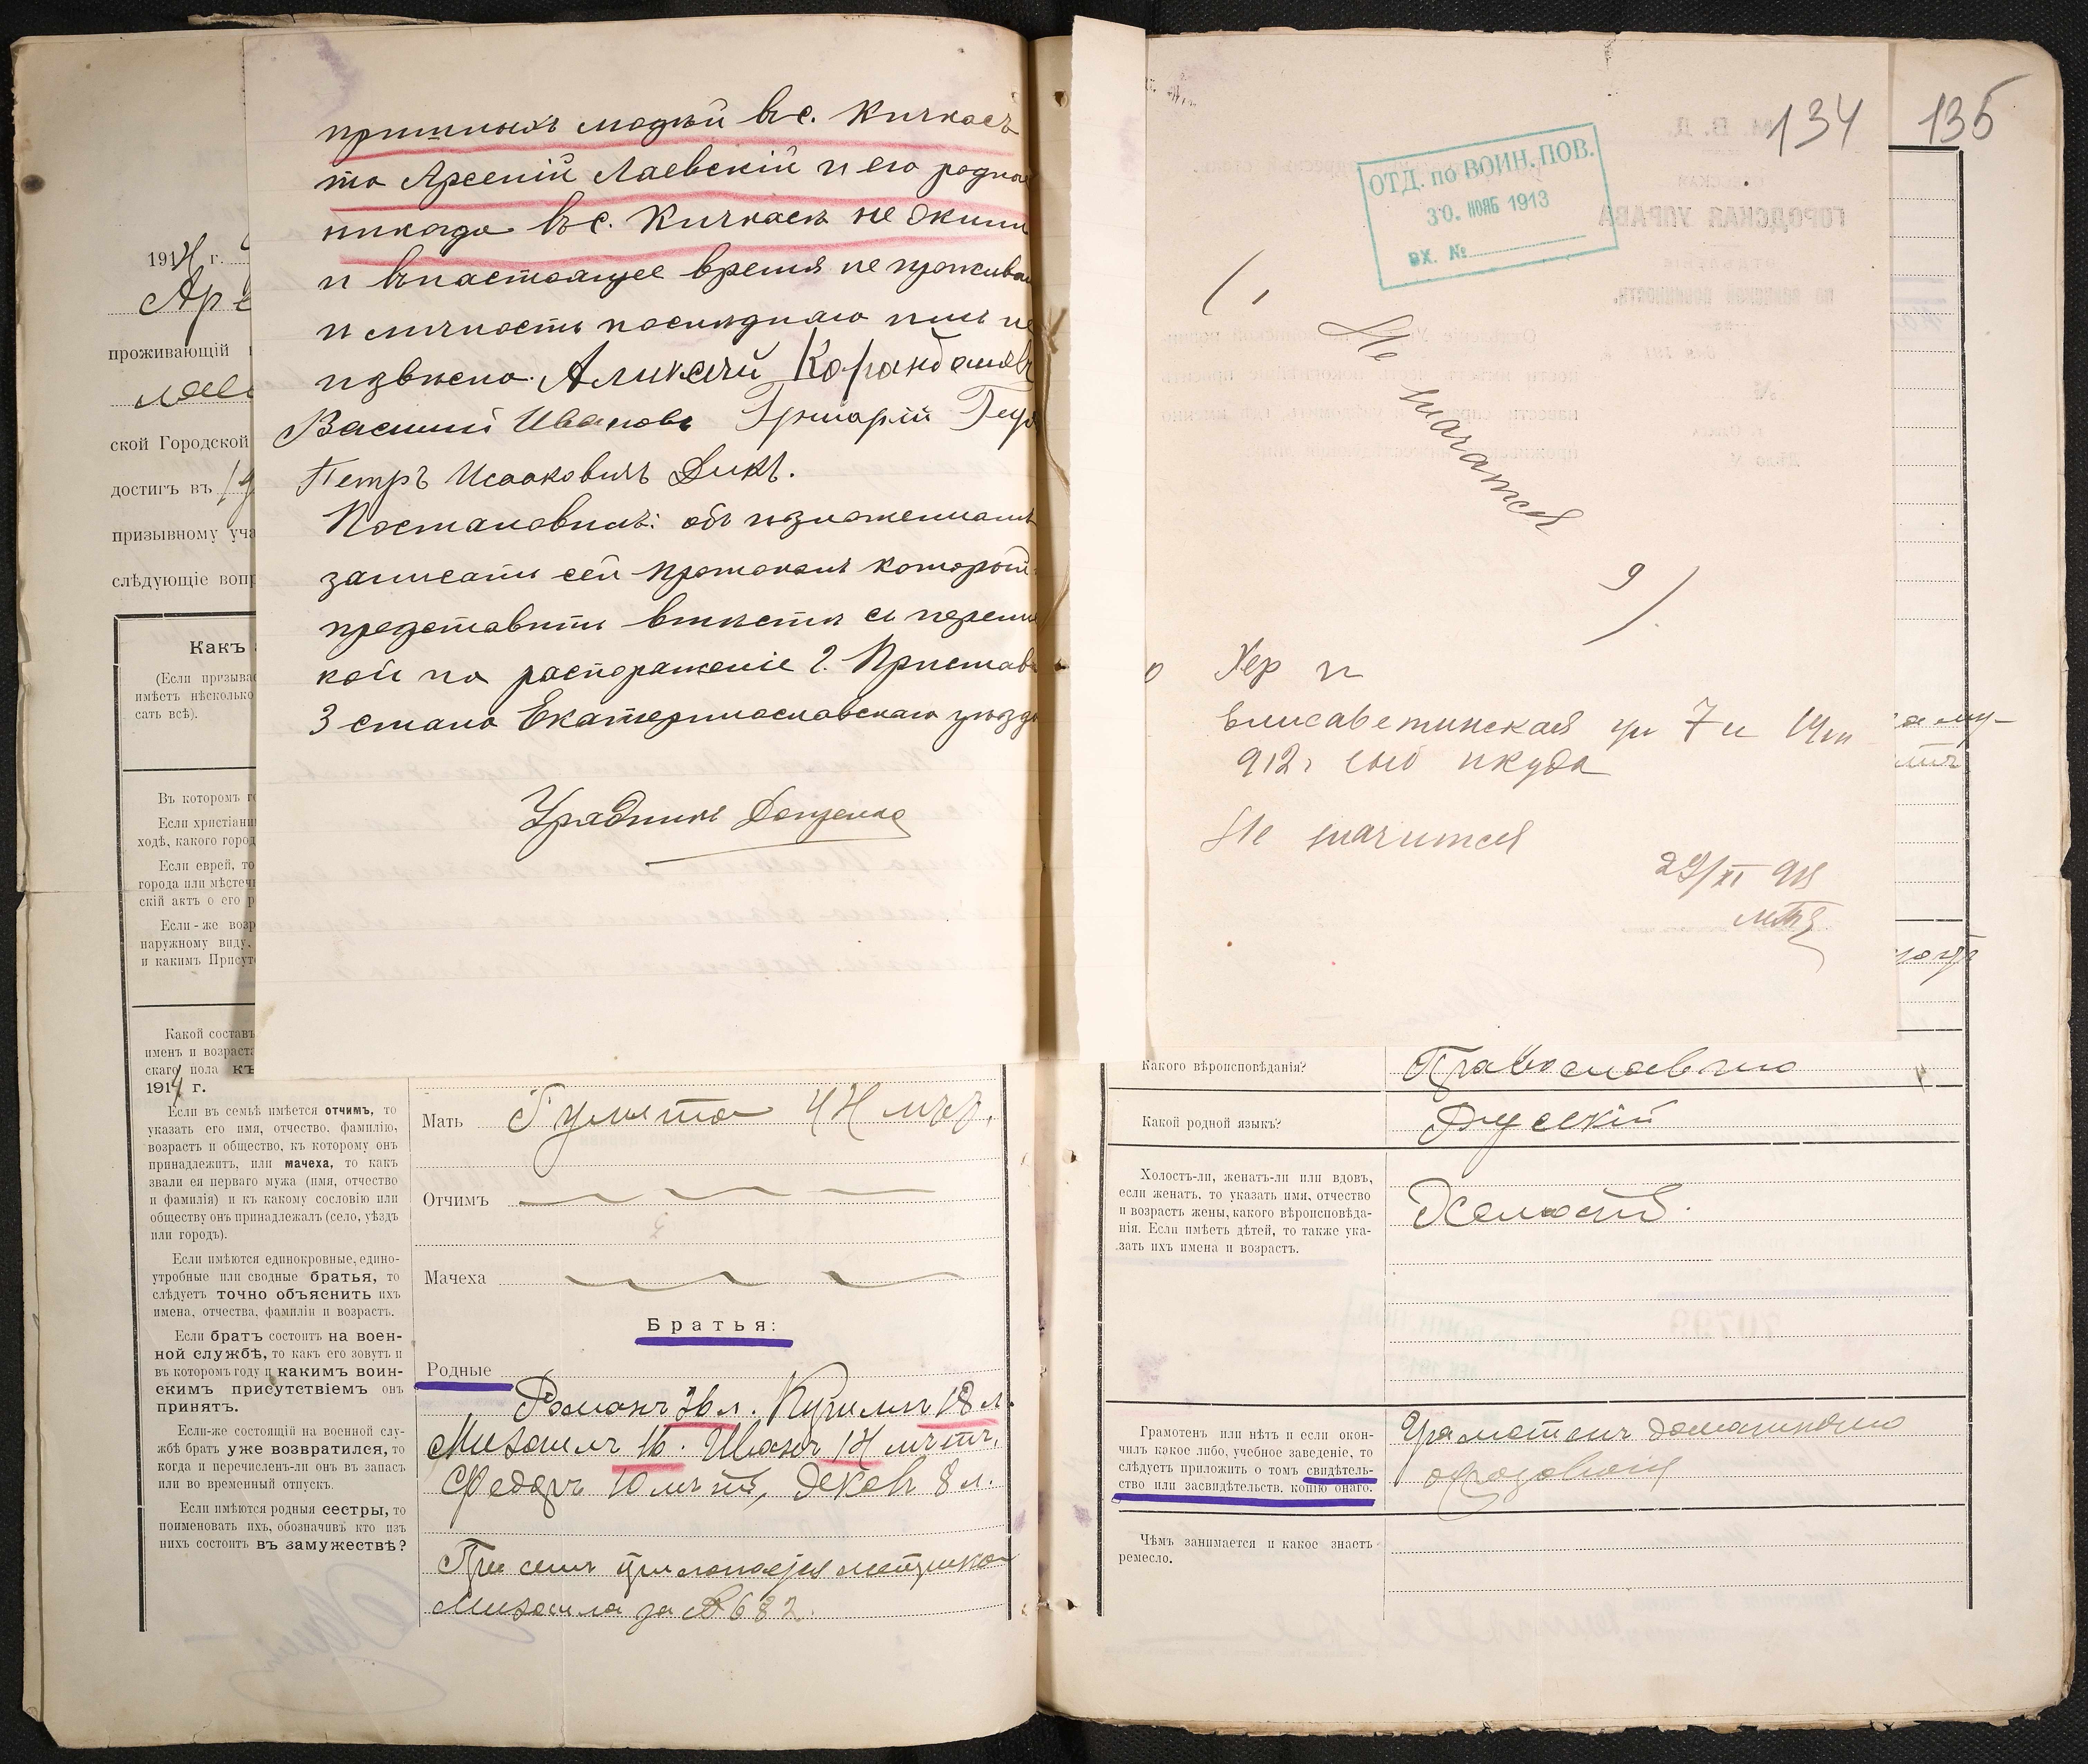 притныхъ людей въ с. Кичкасъ
то Арсеній Лаевскій и его родные
никогда въ с. Кичкасъ не жили
и въ настоящее время не прожива
и личность последняго имъ не
извѣсно. Аликсѣй Карандашовъ
Василий Ивановъ Григорій
Петръ Исааковичъ Дикъ.
Постановилъ: объ изложенномъ
записать сей протоколъ который
представить вмѣстѣ съ перепис
кой на распоряженіе Г. Пристава
3 стана Екатеринославскаго уѣзда
Урядникъ Доценко
1914 г.
Арс
проживающій
ской Городской
достигъ въ 19
призывному уча
слѣдующіе вопр
Какъ
(Если призывае
имѣетъ нѣсколько
сать всѣ).
Въ которомъ г
Если христіани
ходѣ, какого город
Если еврей, то
города или мѣстечк
скій актъ о его р
Если-же возр
наружному виду,
и какимъ Присут
Какой составъ
именъ и возраста
скаго пола къ
1914 г.
Если въ семьѣ имѣется отчимъ, то
указать его имя, отчество, фамилію,
возрастъ и общество, къ которому онъ
принадлежитъ, или мачеха, то какъ
звали ея перваго мужа (имя, отчество
и фамилія) и къ какому сословію или
обществу онъ принадлежалъ (село, уѣздъ
или городъ).
Если имѣются единокровные, едино-
утробные или сводные братья, то
слѣдуетъ точно объяснить ихъ
имена, отчества, фамиліи и возрастъ.
Если братъ состоитъ на воен-
ной службѣ, то какъ его зовутъ и
въ которомъ году и какимъ воин-
скимъ присутствіемъ онъ
принятъ.
Если-же состоящій на военной слу-
жбѣ братъ уже возвратился, то
когда и перечисленъ-ли онъ въ запасъ
или во временный отпускъ.
Если имѣются родныя сестры, то
поименовать ихъ, обозначивъ кто изъ
нихъ состоитъ въ замужествѣ?
Мать 44 лѣт.
Отчимъ
Мачеха
Братья:
Родные
Романъ 36 л. Кирилъ 18 л.
Михаилъ 16. Иванъ 14 лѣтъ,
Федоръ 10 лѣтъ, Яковъ 8 л.
При семъ прилогаеся метрика
Михаила за № 682.
134
135
ОТД. по ВОИН. ПОВ.
30. НОЯБ 1913
ВХ. №
Не
значатся
Хер п
Елисаветинская ул 7 и
912 г
Не значится
29/XI 913
Какого вѣроисповѣданія? Православно
Какой родной языкъ? Русскій
Холостъ-ли, женатъ-ли или вдовъ,
если женатъ, то указать имя, отчество
и возрастъ жены, какого вѣроисповѣда-
нія. Если имѣетъ дѣтей, то также ука-
зать ихъ имена и возрастъ.
Холостъ.
Грамотенъ или нѣтъ и если окон-
чилъ какое либо, учебное заведеніе, то
слѣдуетъ приложить о томъ свидѣтель-
ство или засвидѣтельств. копію онаго.
Грамотенъ домашняго
образованія
Чѣмъ занимается и какое знаетъ
ремесло.